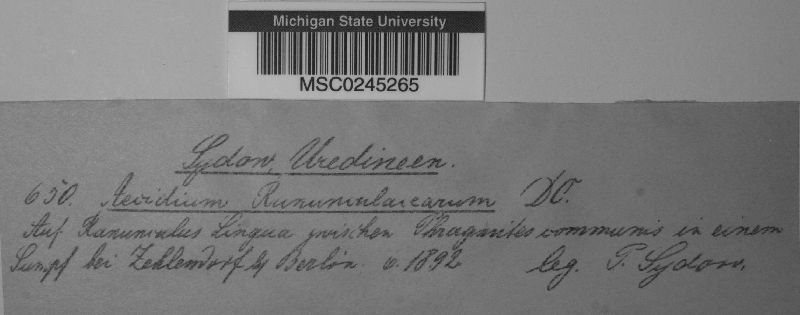 Michigan State University
MSC0245265
Sydow, Uredineen.
650. Aecidium Ranunculacearum DC.
Auf Ranunculus Lingua zwischen Phragmites communis in einem
Sumpf bei Zehlendorf Berlin. 1892 leg. P. Sydow.